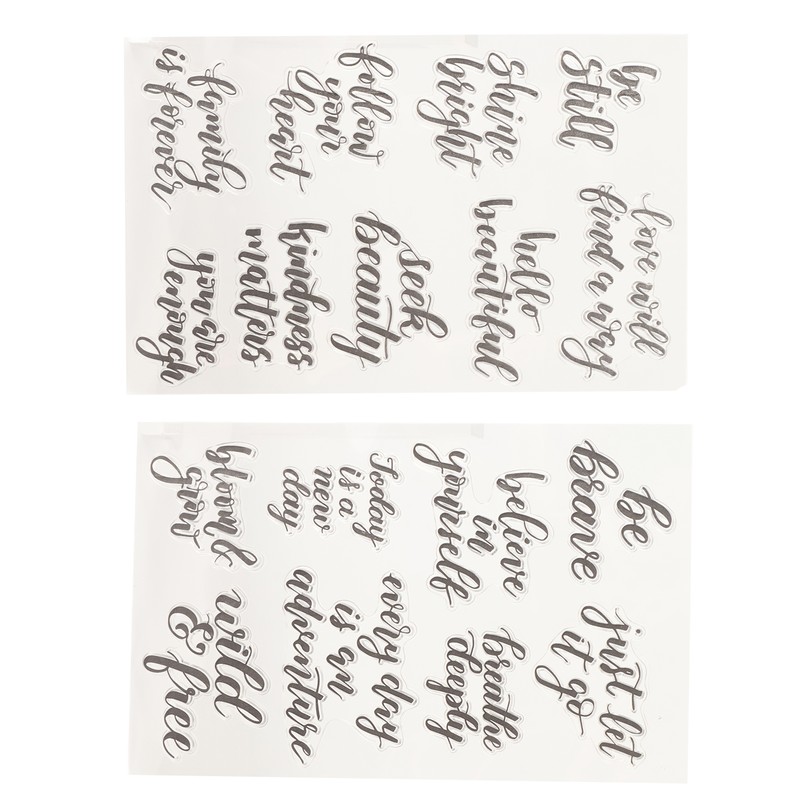 be
still
love will
find a way
shine
bright
hello
beautiful
follow
your
heart
seek
beauty
kindness
matters
family
is forever
you are
enough
be
brave
just let
it go
believe
in
yourself
breathe
deeply
Today
is a
new
day
every day
is an
adventure
bloom &
grow
wild
& free